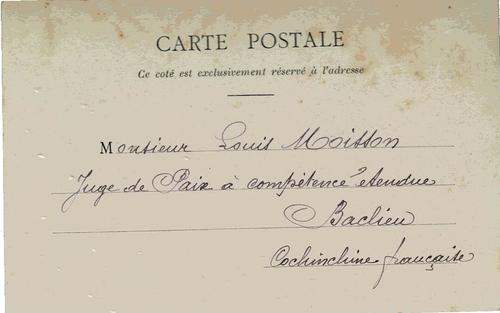 CARTE POSTALE
Ce coté est exclusivement réservé à l'adresse
Monsieur Louis Moisson
Juge de Paix à compétence étendue
Baclieu
Cochinchine française